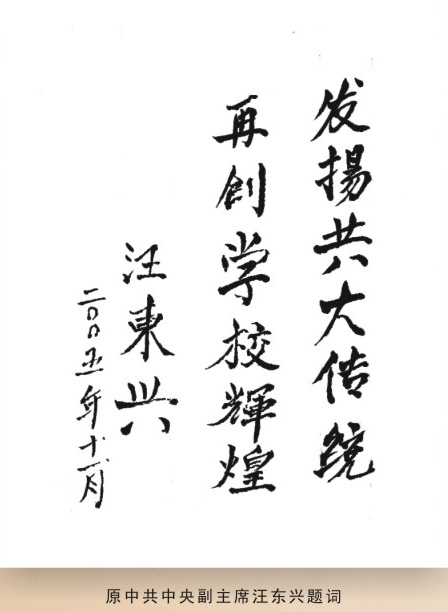 发揚共大传统
再創学校輝煌
汪東兴
二〇〇五年十一月
原中共中央副主席汪东兴题词